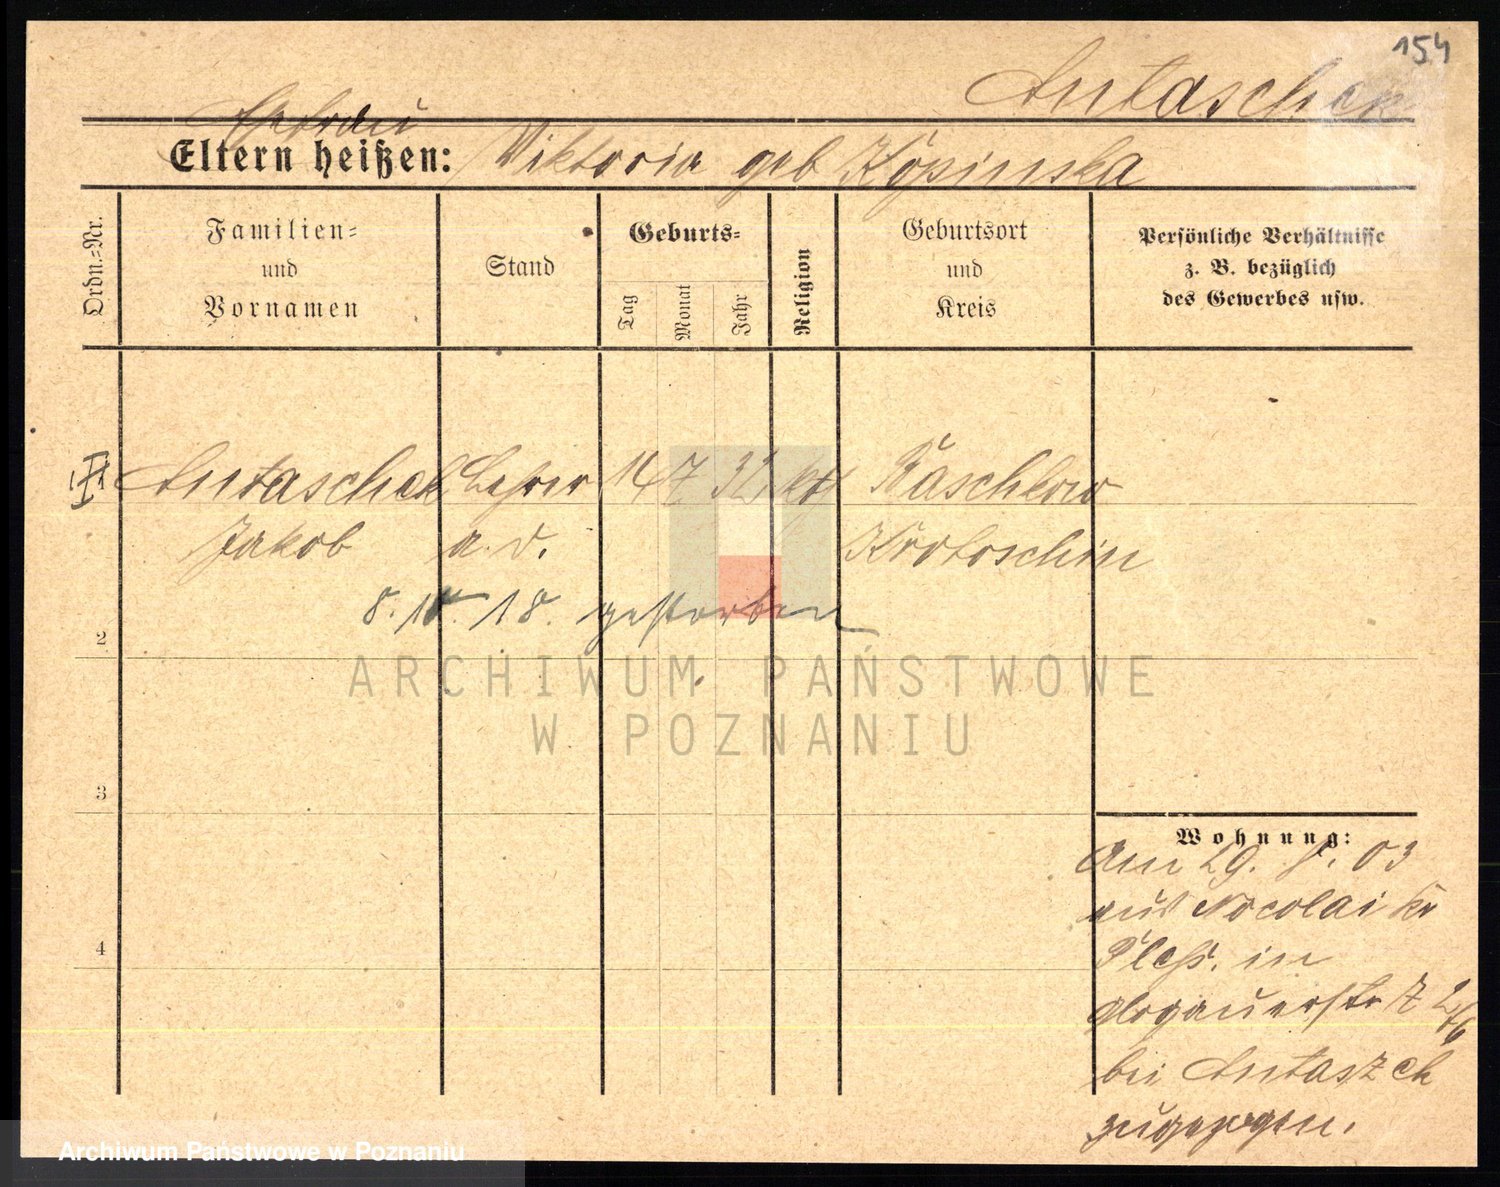 154
Antaschek
Ehefrau
Eltern heißen: Viktoria geb Kosinska
Ordn.=Nr.
Familien=
und
Vornamen
Stand
Geburts=
Tag
Monat
Jahr
Religion
Geburtsort
und
Kreis
Persönliche Verhältnisse
z. B. bezüglich
des Gewerbes usw.
1 Antaschek Lehrer 14 7 32 kth Raschkow
Jakob a. D. Krotoschin
8. 18. gestorben
2
3
4
Wohnung:
Am 29. 03
aus Nocolai Kr
Pless. in
Glogauerstr
bei Antaszek
zugezogen.
ARCHIWUM PAŃSTWOWE
W POZNANIU
Archiwum Państwowe w Poznaniu